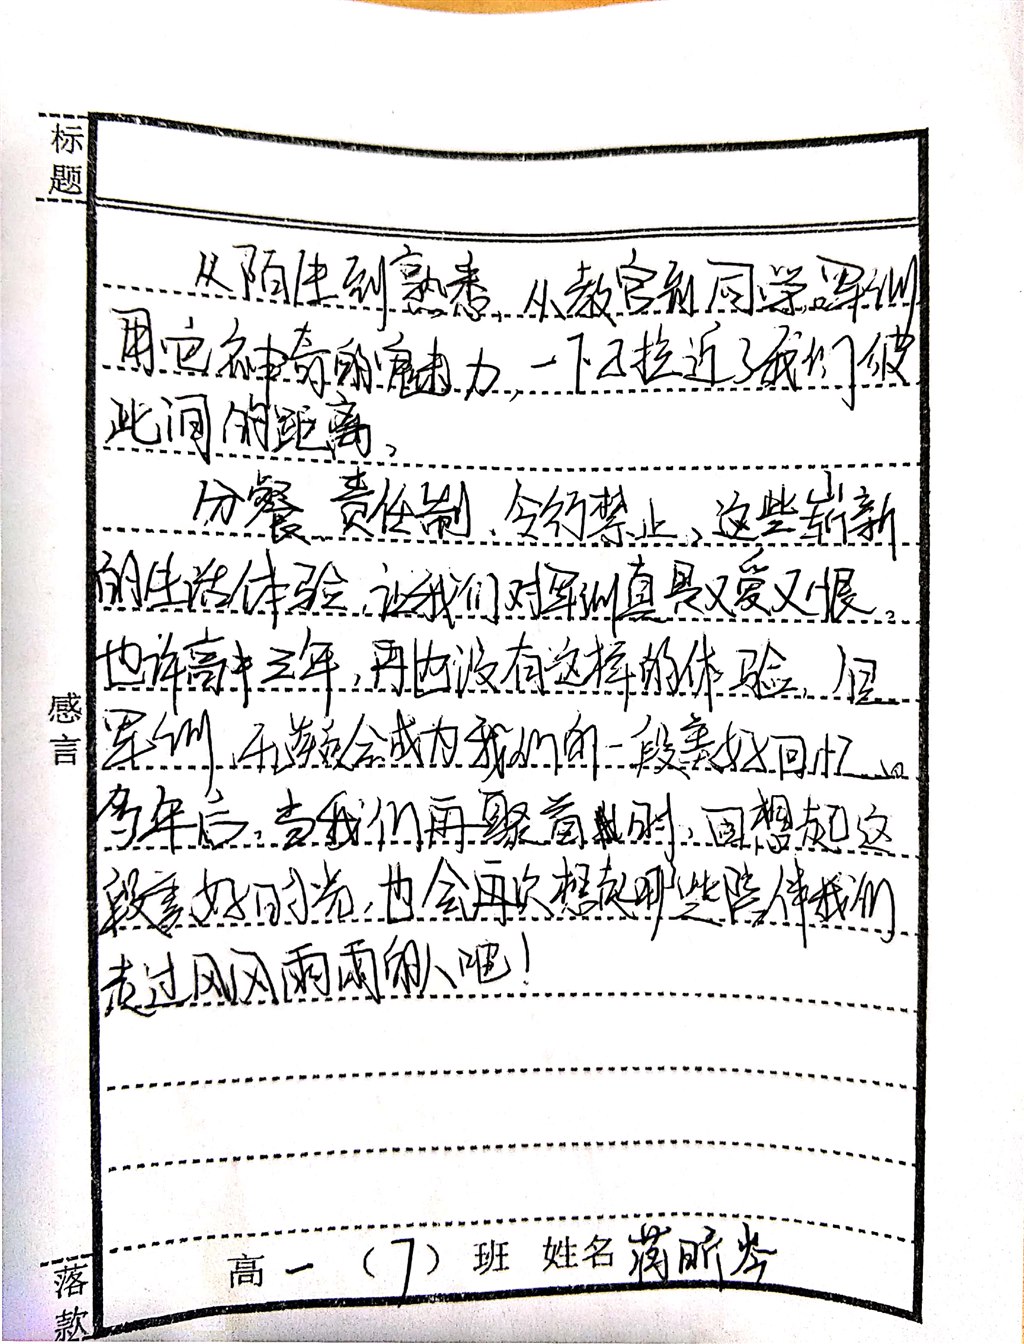 标题
从陌生到熟悉，从教官到同学，军训
用它神奇的魅力，一下子拉近了我们彼
此间的距离。
分餐、责任制、令行禁止，这些崭新
的生活体验，让我们对军训真是又爱又恨。
也许高中三年，再也没有这样的体验，但
军训，无疑会成为我们的一段美好回忆。
感言
多年后，当我们再聚首时，回想起这
段美好时光，也会再次想起那些陪伴我们
走过风风雨雨的人吧！
落款
高一（7）班 姓名 蒋昕岑